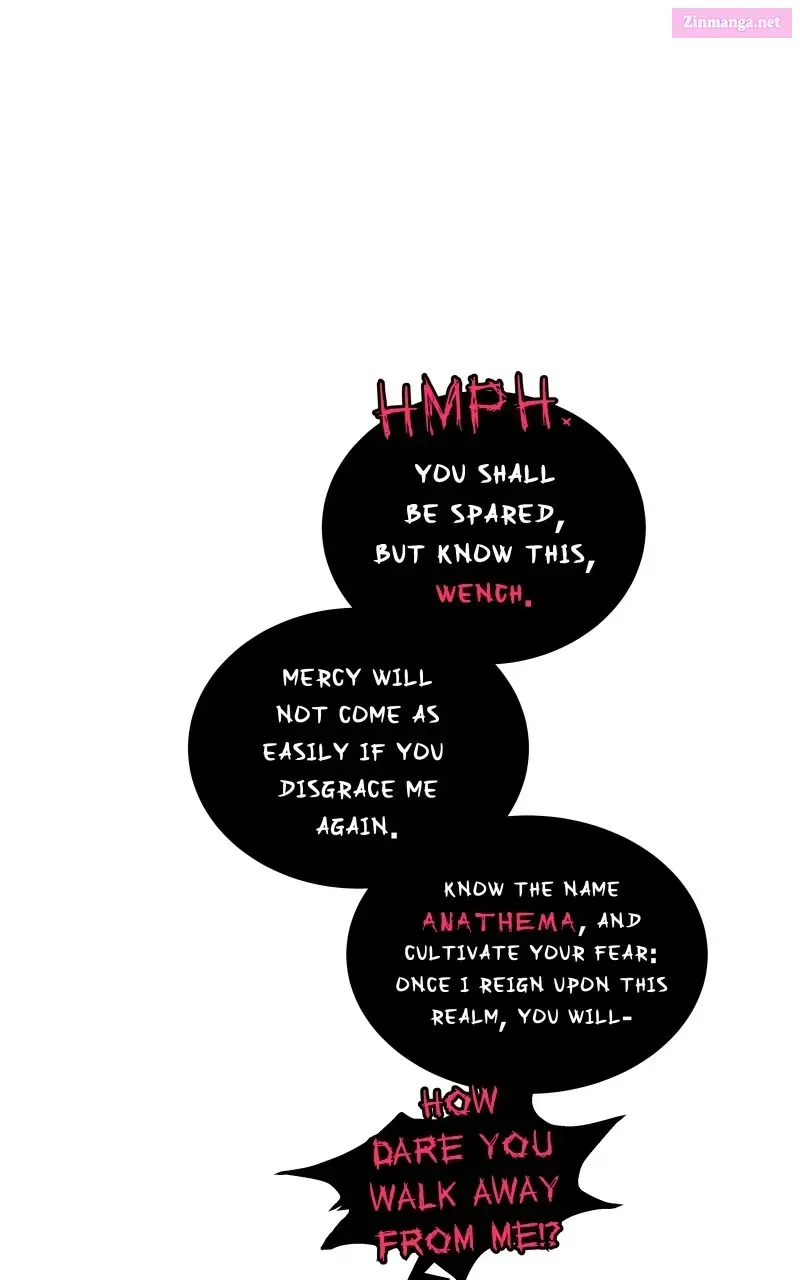 Zinmanga.net
HMPH.
YOU SHALL
BE SPARED,
BUT KNOW THIS,
WENCH.
MERCY WILL
NOT COME AS
EASILY IF YOU
DISGRACE ME
AGAIN.
KNOW THE NAME
ANATHEMA, AND
CULTIVATE YOUR FEAR:
ONCE I REIGN UPON THIS
REALM, YOU WILL-
HOW
DARE YOU
WALK AWAY
FROM ME!?